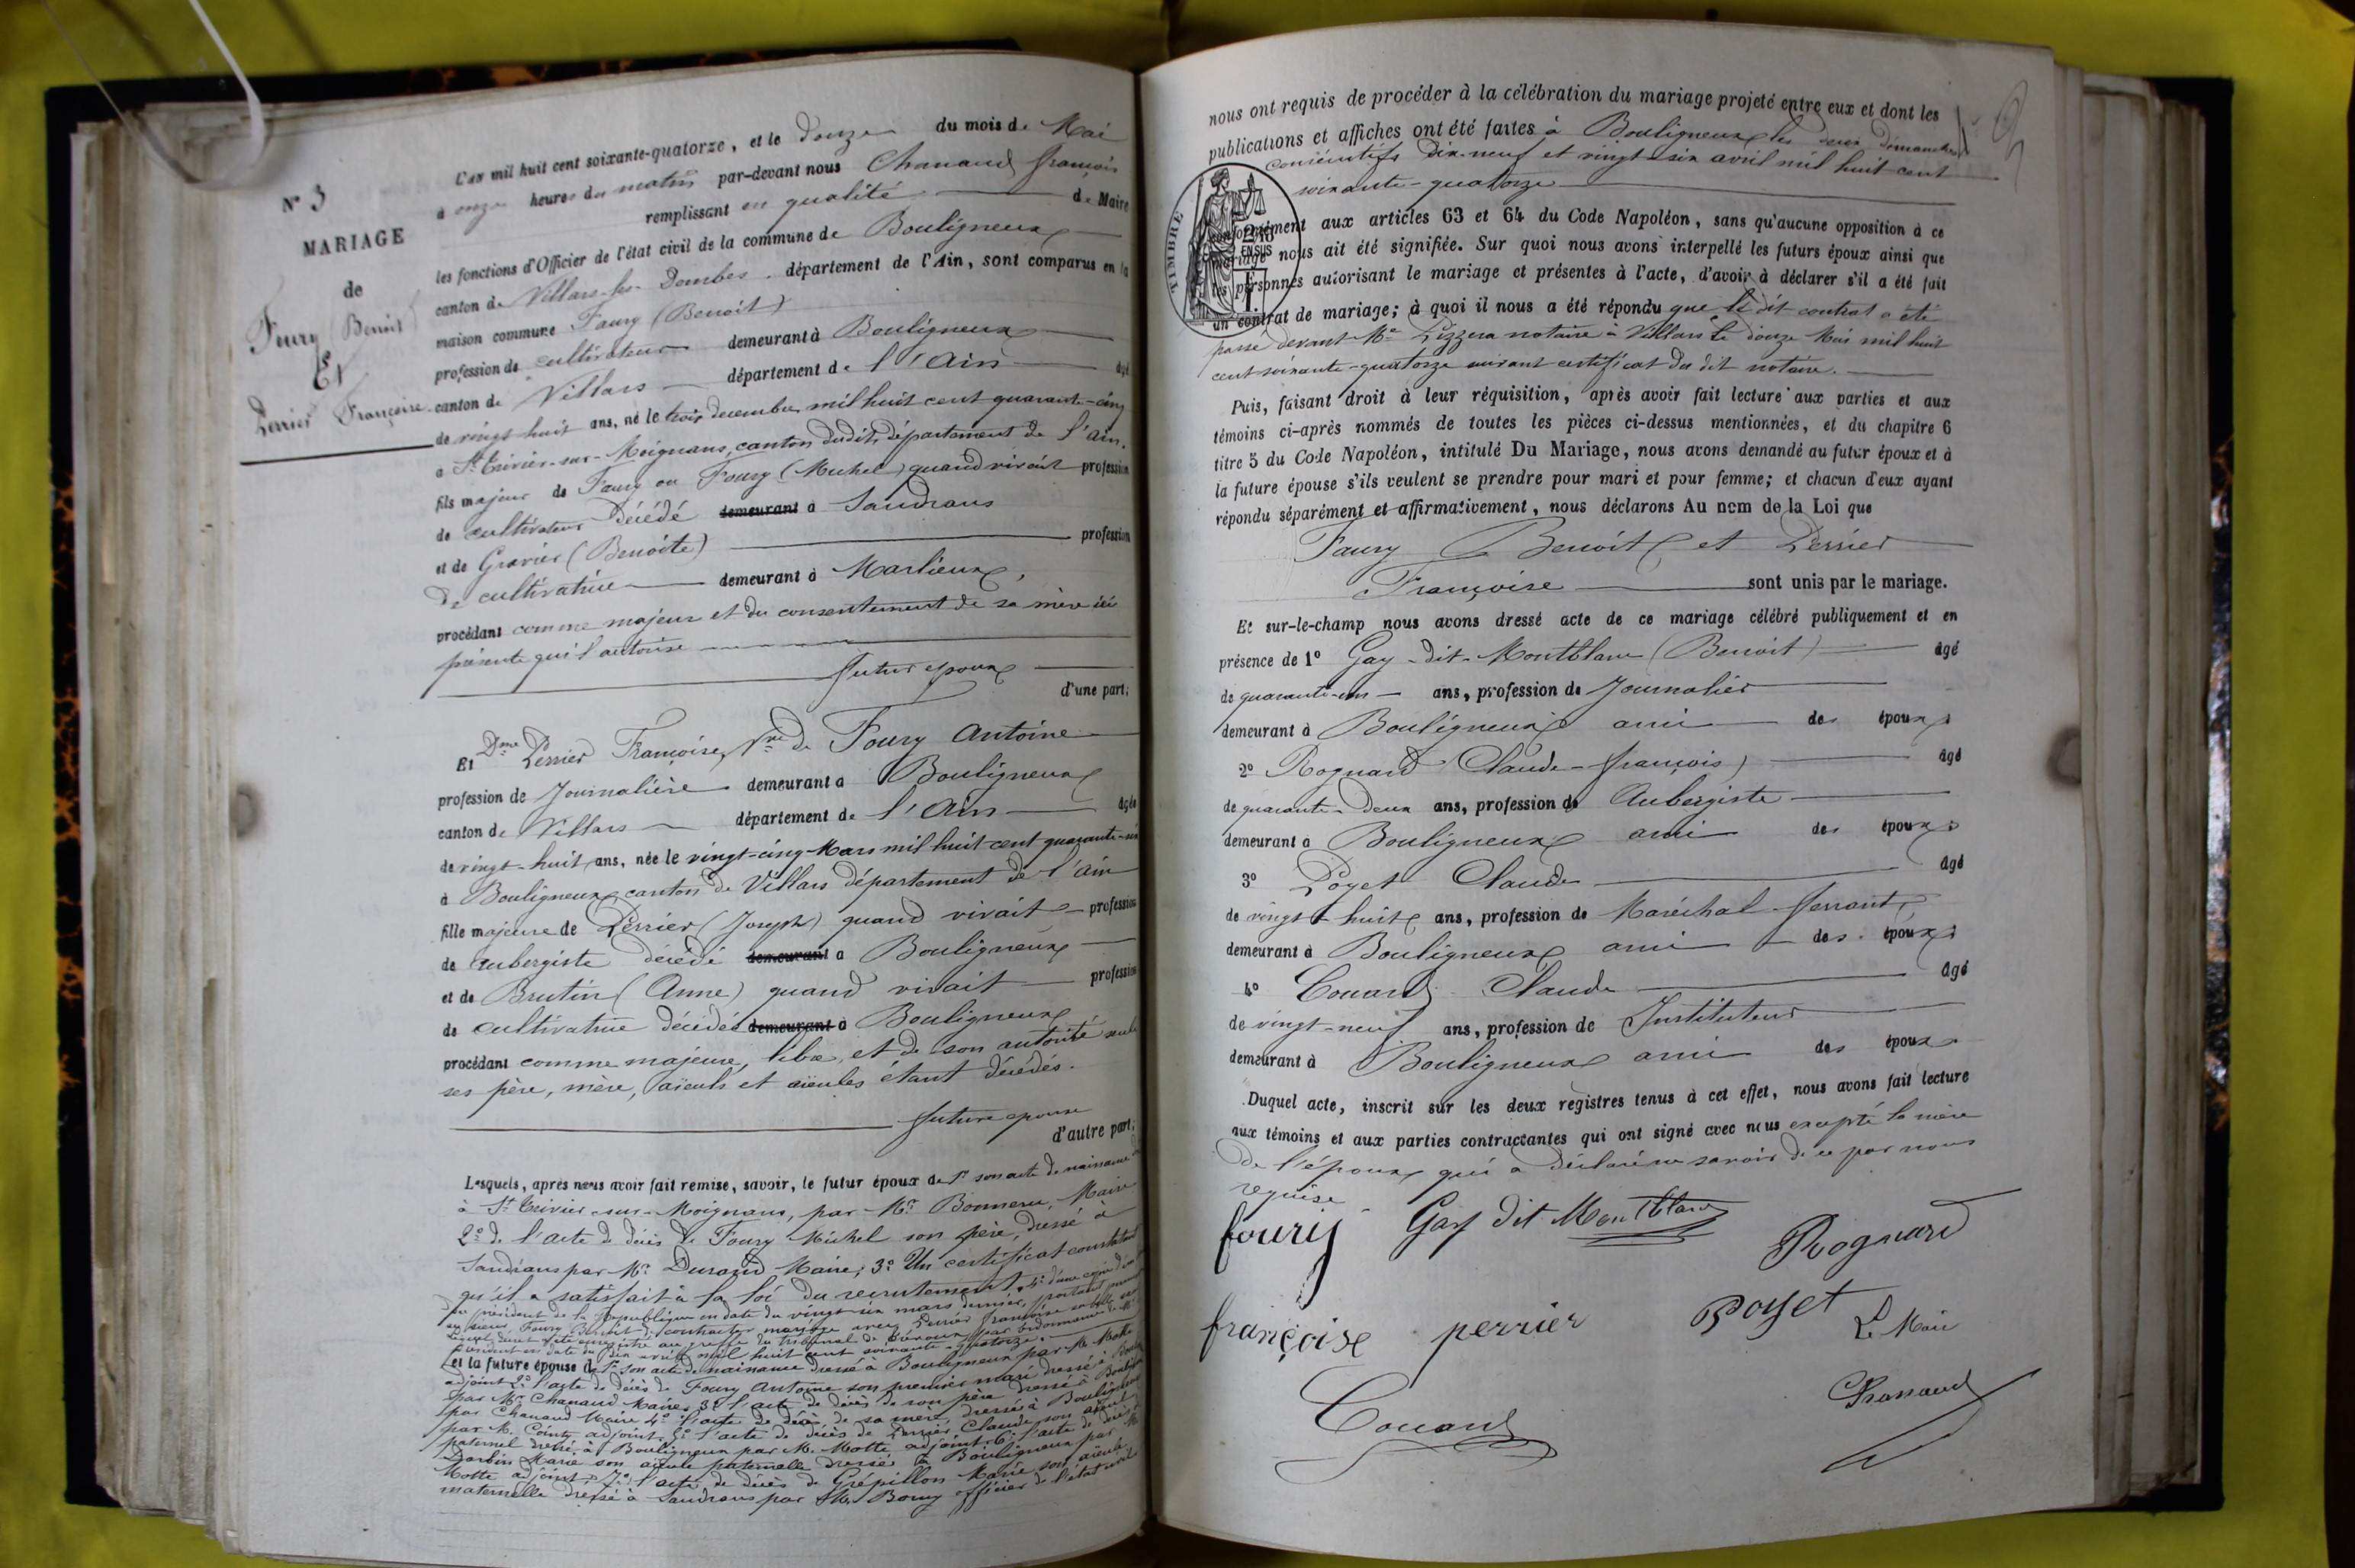 N° 3
MARIAGE
de
Foury (Benoit)
Et
Perrier Françoise
L'an mil huit cent soixante-quatorze, et le douze du mois de Mai
à onze heures du matin par-devant nous Chanaud François
remplissant en qualité de Maire
les fonctions d'Officier de l'état civil de la commune de Bouligneux
canton de Villars-les-Dombes, département de l'Ain, sont comparus en la
maison commune Foury (Benoit)
profession de cultivateur demeurant à Bouligneux
canton de Villars département de l'Ain âgé
de vingt huit ans, né le trois décembre mil huit cent quarante-cinq
à St Trivier-sur-Moignans, canton dudit, département de l'Ain.
fils majeur de Faury ou Foury (Michel) quand vivait profession
de cultivateur décédé demeurant à Sandrans
et de Gravier (Benoite) profession
de cultivatrice demeurant à Marlieux,
procédant comme majeur et du consentement de sa mère ici
présente qui l'autorise
futur époux
d'une part;
Et Dme Perrier Françoise, Vve de Foury Antoine
profession de Journalière demeurant à Bouligneux
canton de Villars département de l'Ain âgée
de vingt-huit ans, née le vingt-cinq Mars mil huit cent quarante-six
à Bouligneux, canton de Villars département de l'Ain
fille majeure de Perrier (Joseph) quand vivait profession
de aubergiste décédé demeurant à Bouligneux
et de Brutin (Anne) quand vivait profession
de cultivatrice décédée demeurant à Bouligneux
procédant comme majeure, libre, et de son autorité seule
ses père, mère, aïeuls et aïeules étant décédés.
future épouse
d'autre part;
Lesquels, après nous avoir fait remise, savoir, le futur époux de 1° son acte de naissance
à St Trivier-sur-Moignans, par Mr. Maire
2° de l'acte de décès de Foury Michel son père, dressé à
Sandrans par Mr. Durand Maire; 3° Un certificat constatant
qu'il a satisfait à la loi du recrutement, 4° d'une copie
du président de la République en date du vingt-six mars dernier, portant
au sieur Foury Benoit de contracter mariage avec Perrier Françoise sa belle
au greffe du tribunal de Trévoux par ordonnance de Mr
président en date du six avril mil huit cent soixante-quatorze.
et la future épouse de 1° son acte de naissance dressé à Bouligneux par Mr. Motte
adjoint 2° l'acte de décès de Foury Antoine son premier mari dressé à
par Mr. Chanaud Maire, 3° l'acte de décès de son père dressé à
par Chanaud Maire 4° l'acte de décès de sa mère, dressé à Bouligneux
par M. adjoint, 5° l'acte de décès de Perrier Claude son aïeul
paternel dressé à Bouligneux par M. Motte adjoint, 6° l'acte de décès
Marie son aïeule paternelle dressé à Bouligneux par M.
Motte adjoint, 7° l'acte de décès de Grépillon Marie son aïeule
maternelle dressé à Sandrans par Mr. officier de l'état civil
nous ont requis de procéder à la célébration du mariage projeté entre eux et dont les
publications et affiches ont été faites à Bouligneux les deux dimanches
consécutifs dix-neuf et vingt-six avril mil huit cent
soixante-quatorze
TIMBRE
conformément aux articles 63 et 64 du Code Napoléon, sans qu'aucune opposition à ce
mariage nous ait été signifiée. Sur quoi nous avons interpellé les futurs époux ainsi que
les personnes autorisant le mariage et présentes à l'acte, d'avoir à déclarer s'il a été fait
un contrat de mariage; à quoi il nous a été répondu que le dit contrat a été
passé devant Me notaire à Villars le douze Mai mil huit
cent soixante-quatorze suivant certificat du dit notaire.
Puis, faisant droit à leur réquisition, après avoir fait lecture aux parties et aux
témoins ci-après nommés de toutes les pièces ci-dessus mentionnées, et du chapitre 6
titre 5 du Code Napoléon, intitulé Du Mariage, nous avons demandé au futur époux et à
la future épouse s'ils veulent se prendre pour mari et pour femme; et chacun d'eux ayant
répondu séparément et affirmativement, nous déclarons Au nom de la Loi que
Faury Benoit et Perrier
Françoise sont unis par le mariage.
Et sur-le-champ nous avons dressé acte de ce mariage célébré publiquement et en
présence de 1° Gay-dit-Montblanc (Benoit) âgé
de quarante-un ans, profession de Journalier
demeurant à Bouligneux ami des époux;
2° Rognard (Claude-François) âgé
de quarante-deux ans, profession de Aubergiste
demeurant à Bouligneux ami des époux;
3° Poyet Claude âgé
de vingt-huit ans, profession de Maréchal-ferrant
demeurant à Bouligneux ami des époux;
4° Couard Claude âgé
de vingt-neuf ans, profession de Instituteur
demeurant à Bouligneux ami des époux
Duquel acte, inscrit sur les deux registres tenus à cet effet, nous avons fait lecture
aux témoins et aux parties contractantes qui ont signé avec nous excepté la mère
de l'époux qui a déclaré ne savoir de ce par nous
requise
fourij Gay dit Montblanc
Rognard
françoise perrier Poyet Le Maire
Couard Chanaud